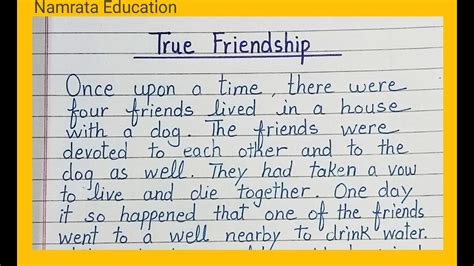 Namrata Education
True Friendship
Once upon a time, there were
four friends lived in a house
with a dog. The friends were
devoted to each other and to the
dog as well. They had taken a vow
to live and die together. One day
it so happened that one of the friends
went to a well nearby to drink water.